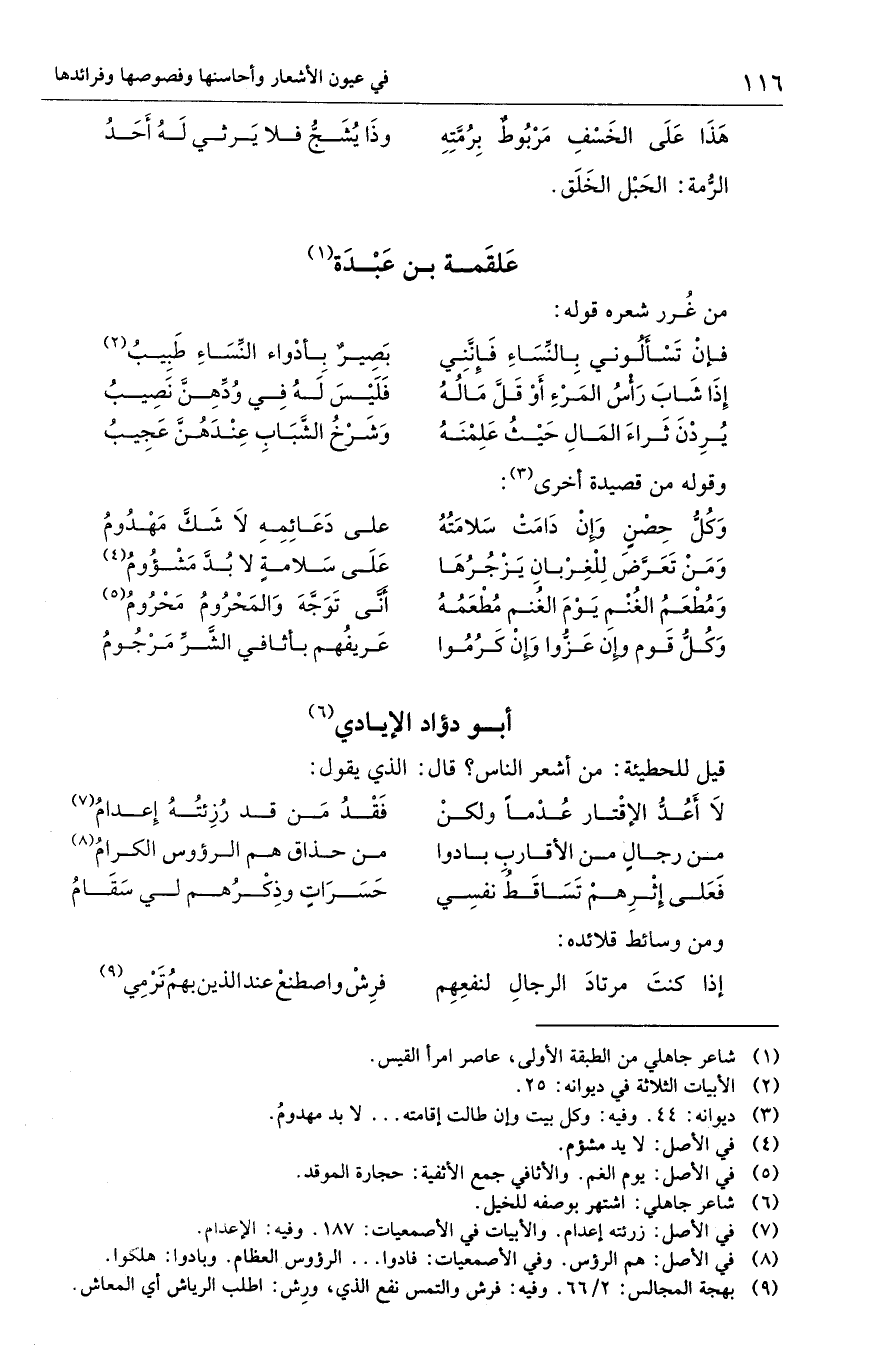 ١١٦ في عيون الأشعار وأحاسنها وفصوصها وفرائدها
هَذَا عَلَى الخَسْفِ مَرْبُوطٌ بِرُمَّتِهِ وذَا يُشَـــجُّ فـــلا يَـــرثـــي لَـــهُ أَحَـــدُ
الرُّمة: الحَبْل الخَلَق.
عَلقَمـــة بـــن عَبْـــدَة(١)
من غُرر شعره قوله:
فـإنْ تَسْـأَلُونـي بِـالنِّسَـاءِ فَـإنَّنِي بَصِيـرٌ بـأدْواء النِّسَـاءِ طَبِيـبُ(٢)
إذَا شَـابَ رَأْسُ المَـرْءِ أَوْ قَـلَّ مَـالُـهُ فَلَيْـسَ لَـهُ فِـي وُدِّهِـنَّ نَصِيـبُ
يُـرِدْنَ ثَـراءَ المَـالِ حَيْـثُ عَلِمْنَـهُ وَشَـرْخُ الشَّبَـابِ عِنْـدَهُـنَّ عَجِيـبُ
وقوله من قصيدة أخرى(٣):
وَكُلُّ حِصْنٍ وَإنْ دَامَتْ سَلامَتُهُ علـى دَعَـائِمِـهِ لاَ شَـكَّ مَهْـدُومُ
وَمَـنْ تَعَـرَّضَ لِلْغِـرْبـانِ يَـزْجُـرُهَـا عَلَـى سَـلامـةٍ لا بُـدَّ مَشْـؤُومُ(٤)
وَمُطْعَـمُ الغُنْـمِ يَـوْمَ الغُنـمِ مُطْعَمُـهُ أَنَّـى تَوَجَّهَ وَالمَحْرُومُ مَحْرُومُ(٥)
وَكُـلُّ قَـوم وإن عَـزُّوا وَإنْ كَـرُمُـوا عَـريفُهـم بـأثـافـي الشَّـرِّ مَـرْجُـومُ
أبـــو دؤاد الإيـادي(٦)
قيل للحطيئة: من أشعر الناس؟ قال: الذي يقول:
لاَ أَعُـدُّ الإقْتـار عُـدْمـاً ولكـنْ فَقْـدُ مَـن قـد رُزِئتُـهُ إعـدامُ(٧)
مـن رجـالٍ مـن الأقـاربِ بـادوا مـن حـذاق هـم الـرؤوس الكـرامُ(٨)
فَعَلـى إثْـرِهـمْ تَسَـاقَـطُ نفسِـي حَسَـرَاتٍ وذِكْـرُهـم لـي سَقَـامُ
ومن وسائط قلائده:
إذا كنتَ مرتادَ الرجالِ لنفعِهِم فرِشْ واصطنعْ عند الذين بهمُ تَرْمِي(٩)
(١) شاعر جاهلي من الطبقة الأولى، عاصر امرأ القيس.
(٢) الأبيات الثلاثة في ديوانه: ٢٥.
(٣) ديوانه: ٤٤. وفيه: وكل بيت وإن طالت إقامته... لا بد مهدومُ.
(٤) في الأصل: لا يد مشؤم.
(٥) في الأصل: يوم الغم. والأثافي جمع الأثفية: حجارة الموقد.
(٦) شاعر جاهلي: اشتهر بوصفه للخيل.
(٧) في الأصل: زرئته إعدام. والأبيات في الأصمعيات: ١٨٧. وفيه: الإعدام.
(٨) في الأصل: هم الرؤس. وفي الأصمعيات: فادوا... الرؤوس العظام. وبادوا: هلكوا.
(٩) بهجة المجالس: ٦٦/٢. وفيه: فرش والتمس نفع الذي، ورِش: اطلب الرياش أي المعاش.